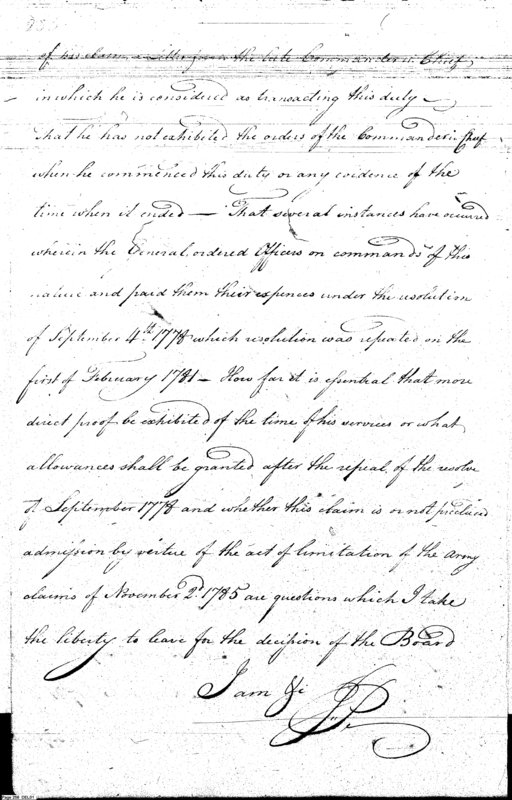 of his claim a Letter from the late Commander in Chief
in which he is considered as transacting this duty —
That he has not exhibited the orders of the Commander in Chief
when he commenced this duty or any evidence of the
time when it ended — That several instances have occured
wherein the General, ordered Officers on commands of this
nature and paid them their expences under the resolution
of September 4th. 1778 which resolution was repeated on the
first of February 1781 — How far it is essential that more
direct proof be exhibited of the time of his services or what
allowances shall be granted after the repeal, of the resolve
of September 1778 and whether this claim is or not precluded
admission by virtue of the act of limitation of the army
claims of November 2d. 1785 are questions which I take
the liberty to leave for the decision of the Board
I am &c